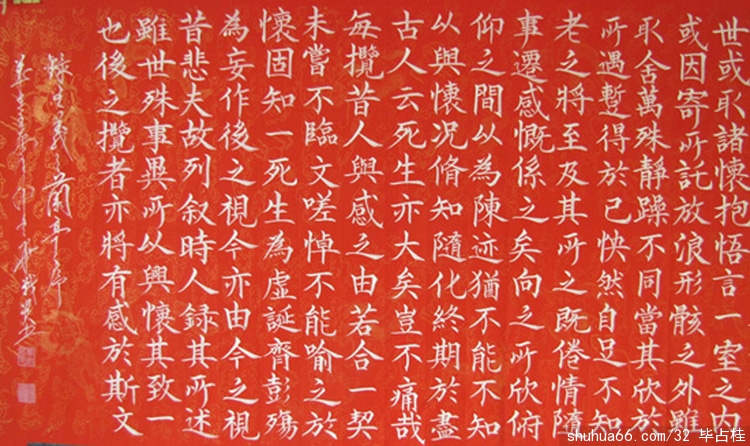 世或取諸懷抱悟言一室之內
或因寄所託放浪形骸之外雖
取舍萬殊靜躁不同當其欣於
所遇蹔得於己快然自足不知
老之將至及其所之既倦情隨
事遷感慨係之矣向之所欣俯
仰之間以為陳迹猶不能不知
以興懷況脩知隨化終期於盡
古人云死生亦大矣豈不痛哉
每攬昔人興感之由若合一契
未嘗不臨文嗟悼不能喻之於
懷固知一死生為虛誕齊彭殤
為妄作後之視今亦由今之視
昔悲夫故列叙時人録其所述
雖世殊事異所以興懷其致一
也後之攬者亦將有感於斯文
錄王羲之蘭亭序
shuhua66.com/32 毕占桂